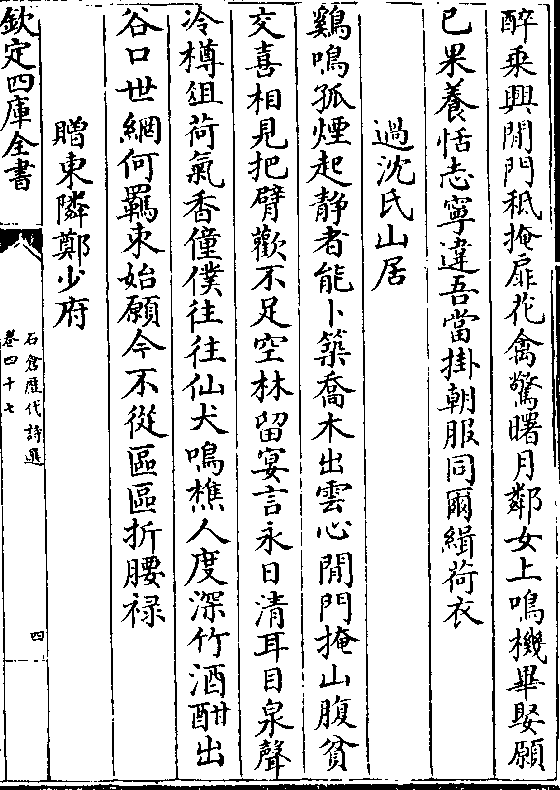 醉乗興閒門秪掩扉花禽驚曙月鄰女上鳴機畢娶願
已果養恬志寧違吾當掛朝服同爾緝荷衣
過沈氏山居
雞鳴孤煙起静者能卜築喬木出雲心閒門掩山腹貧
交喜相見把臂歡不足空林留宴言永日清耳目泉聲
冷樽俎荷氣香僮僕往往仙犬鳴樵人度深竹酒酣出
谷口世網何羈束始願今不從區區折腰禄
贈東隣鄭少府
欽定四庫全書
石倉歴代詩選
卷四十七
四